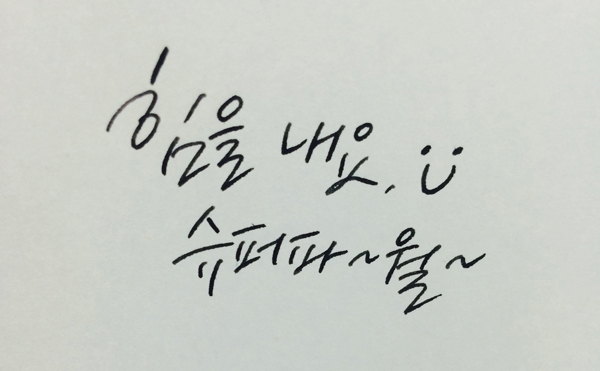 힘을 내요, ت
슈퍼파~월~